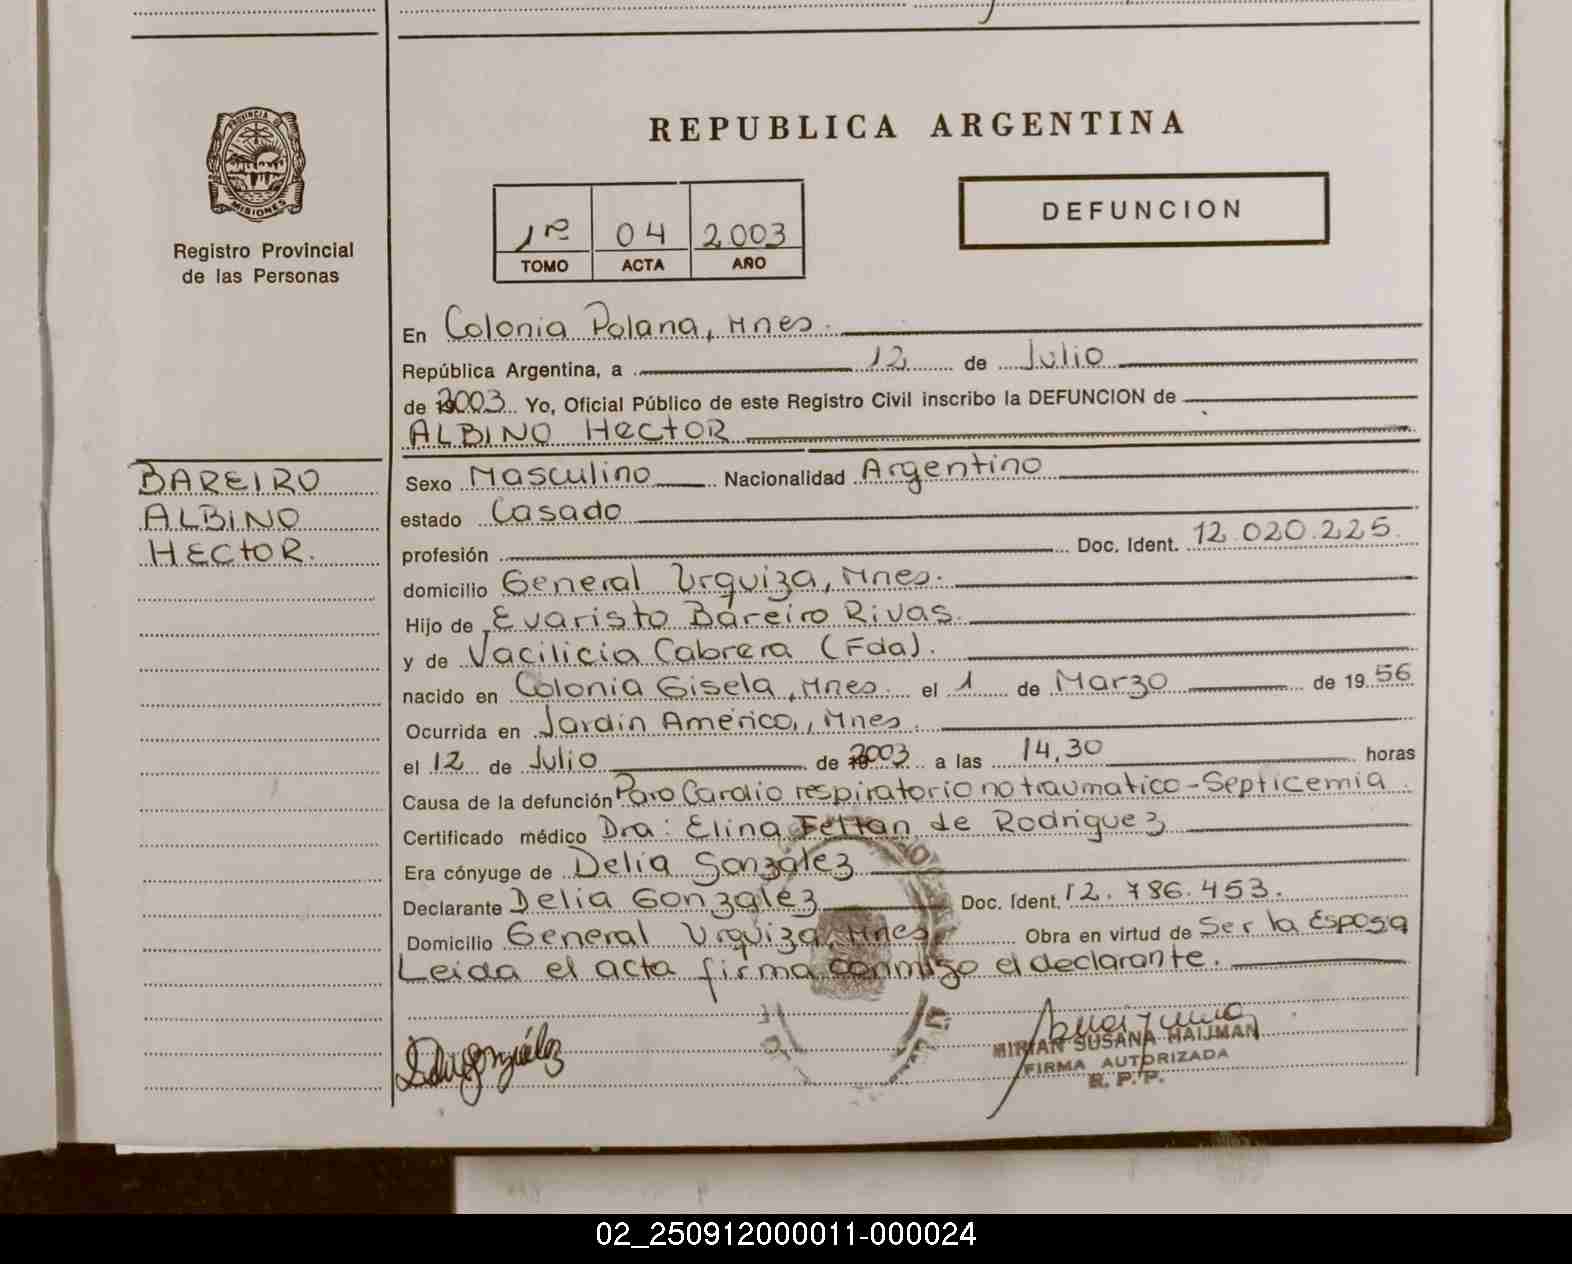 PROVINCIA DE
MISIONES
Registro Provincial
de las Personas
REPUBLICA ARGENTINA
1º 04 2003
TOMO ACTA AÑO
DEFUNCION
En Colonia Polana, Mnes.
República Argentina, a 12 de Julio
de 2003 Yo, Oficial Público de este Registro Civil inscribo la DEFUNCION de
ALBINO HECTOR
BAREIRO
ALBINO
HECTOR.
Sexo Masculino Nacionalidad Argentino
estado Casado
profesión Doc. Ident. 12.020.225.
domicilio General Urquiza, Mnes.
Hijo de Evaristo Bareiro Rivas.
y de Vacilicia Cabrera (Fda).
nacido en Colonia Gisela, Mnes. el 1 de Marzo de 1956
Ocurrida en Jardin Américo,, Mnes.
el 12 de Julio de 2003 a las 14,30 horas
Causa de la defunción Paro Cardio respiratorio no traumatico - Septicemia.
Certificado médico Dra: Elina de Rodriguez
Era cónyuge de Delia Gonzalez
Declarante Delia Gonzalez Doc. Ident. 12.786.453.
Domicilio General Urquiza, Mnes. Obra en virtud de Ser la Esposa
Leida el acta firma conmigo el declarante.
MIRIAN SUSANA HAIJMAN
FIRMA AUTORIZADA
R. P. P.
02_250912000011-000024